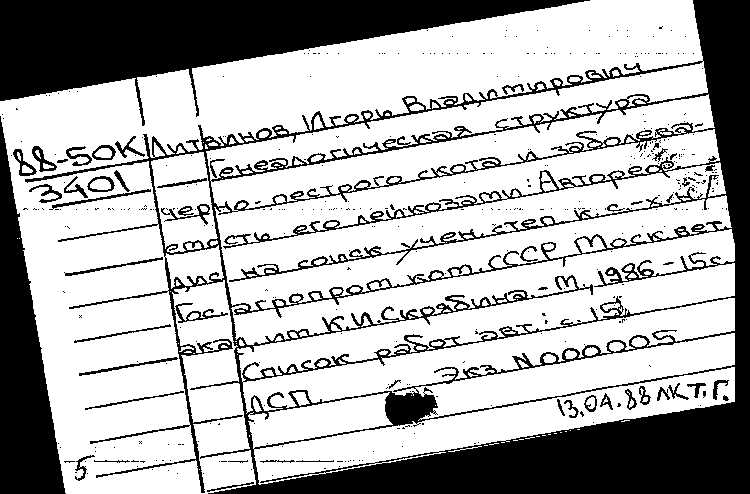 88-50К
3401
Литвинов, Игорь Владимирович
Генеалогическая структура
черно-пестрого скота и заболева-
емость его лейкозами: Автореф.
дис. на соиск. учен. степ. к. с.-х. н. /
Гос. агропром. ком. СССР, Моск. вет.
акад. им. К.И. Скрябина. - М., 1986. - 15 с.
Список работ авт.: с. 15
ДСП. Экз. N000005
13.04.88 ЛКТ.Г.
5